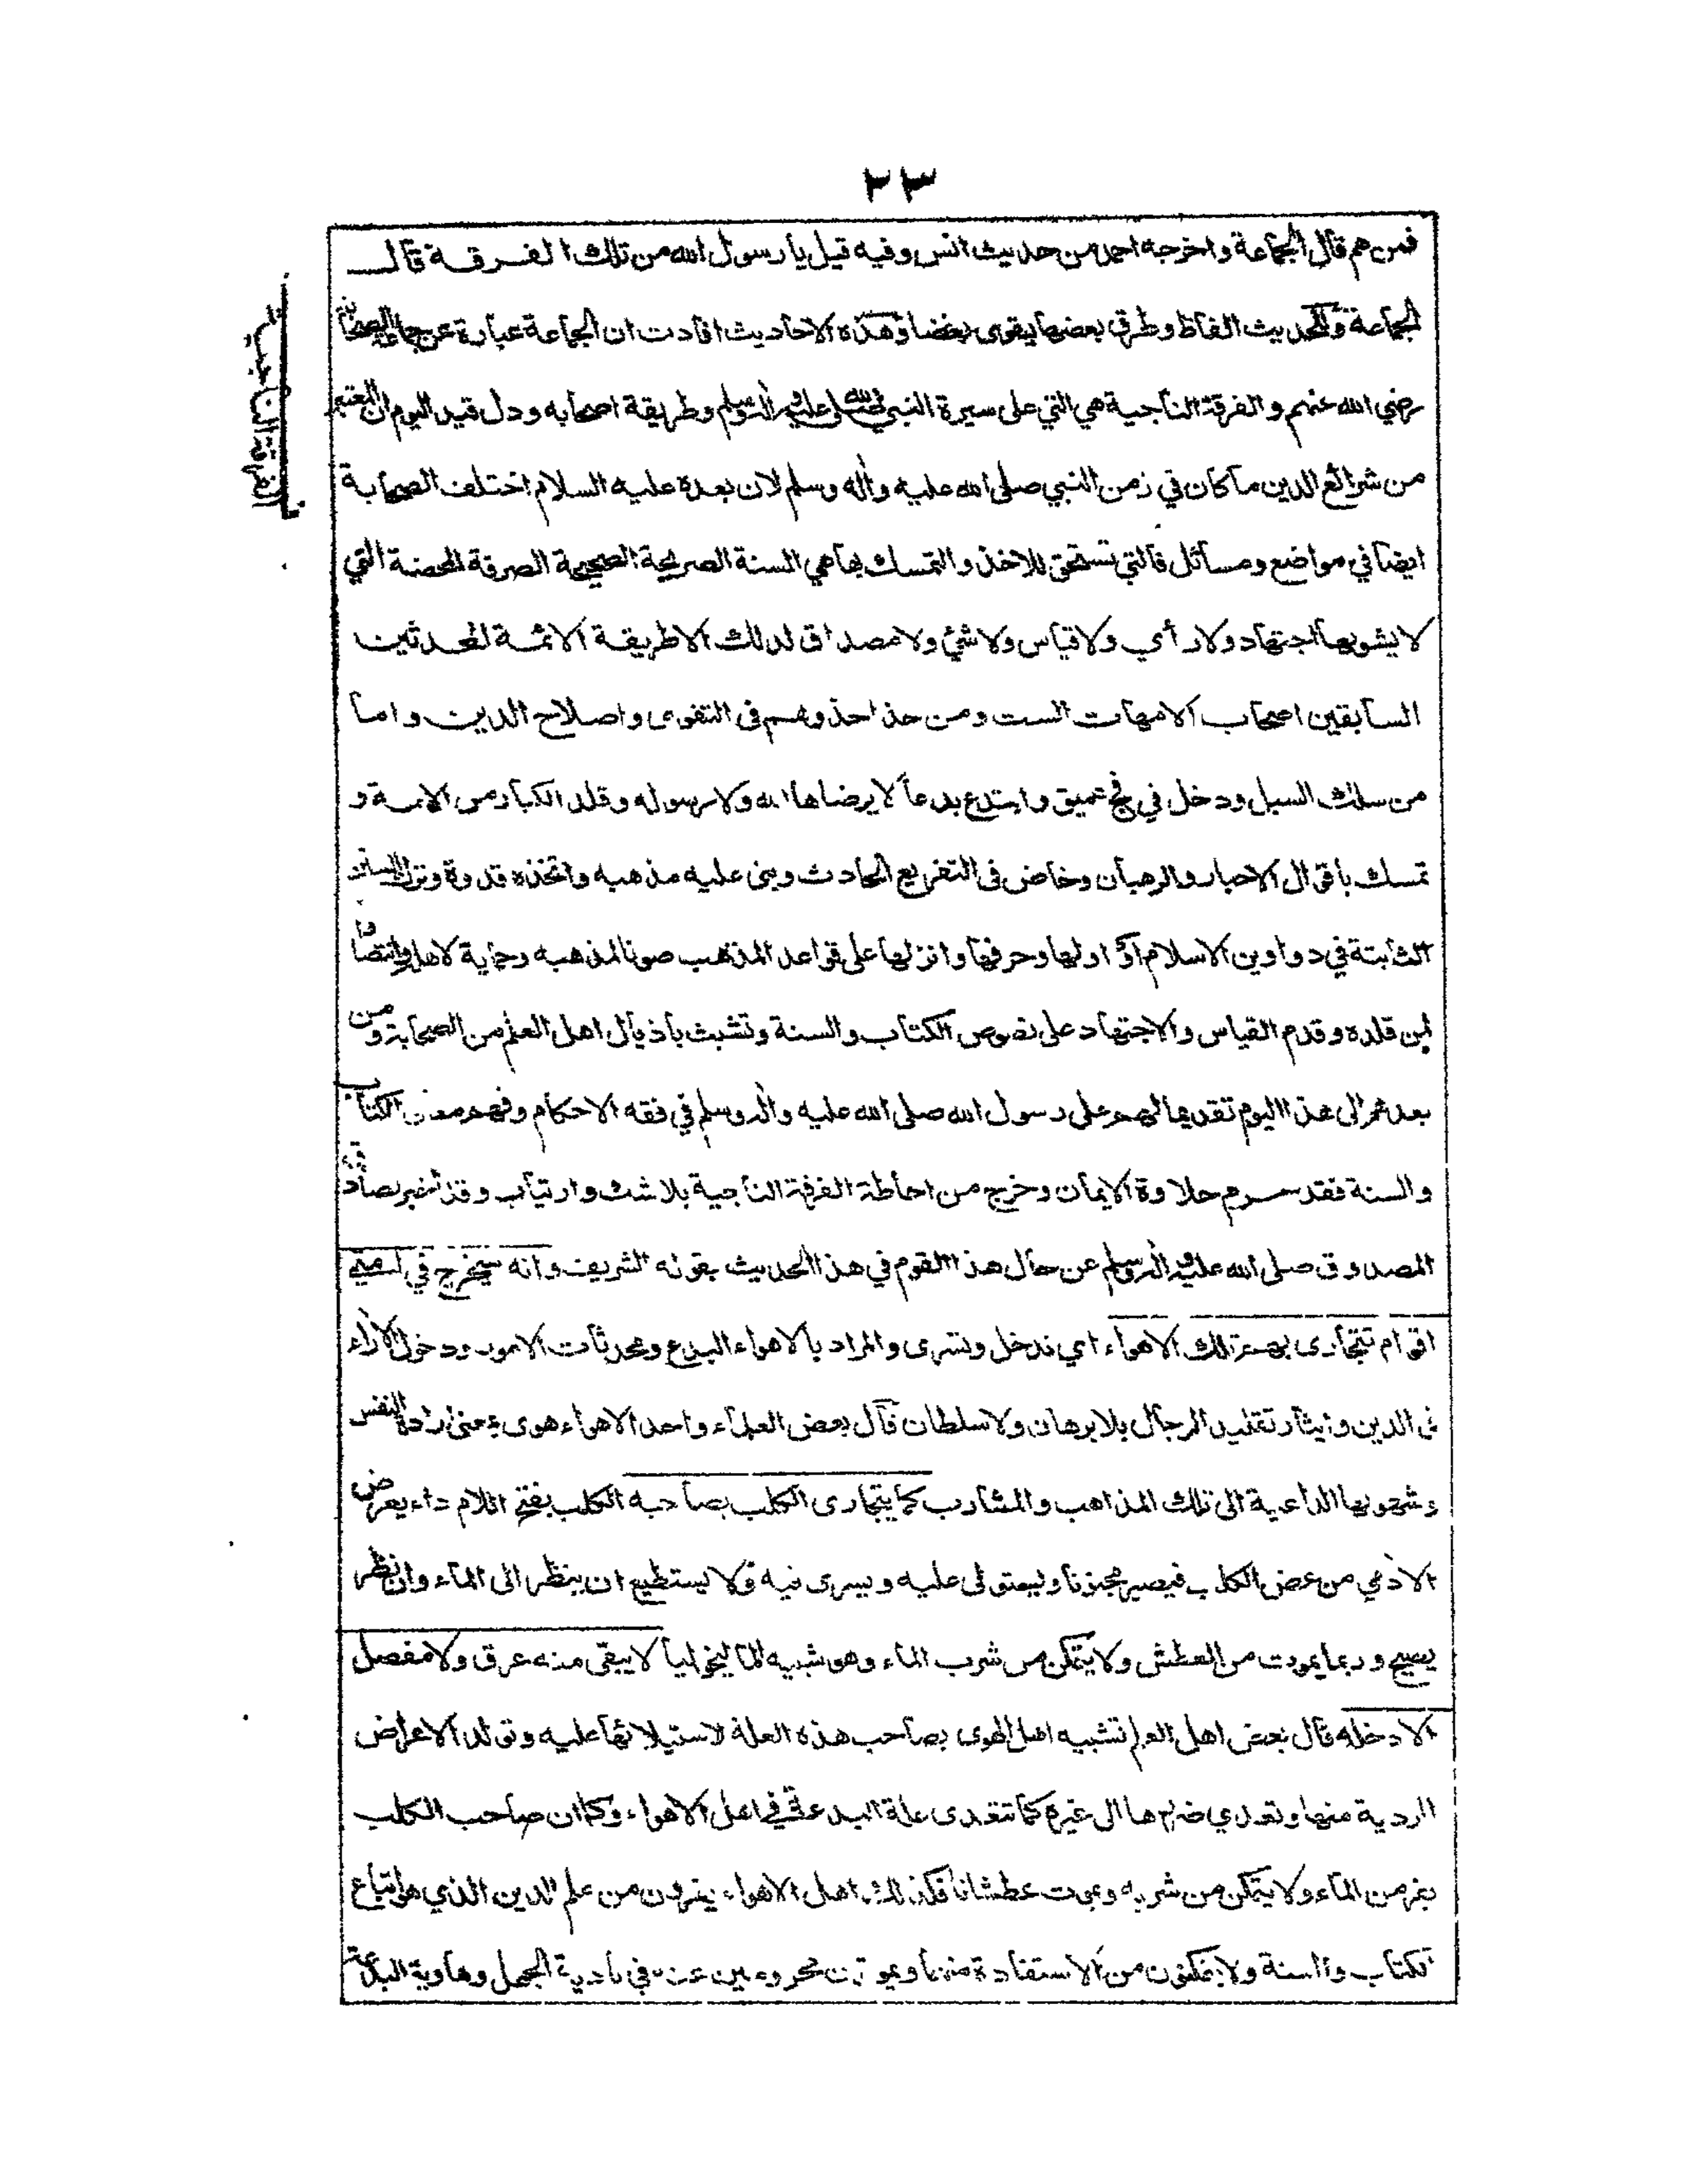 ٢٣
فمن هم قال الجماعة واخرجه احمد من حديث انس وفيه قيل يا رسول الله من تلك الفرقة قال
الجماعة وللحديث الفاظ وطرق بعضها يقوى بعضا وهذه الاحاديث افادت ان الجماعة عبارة عن جماعة الصحابة
رضي الله عنهم والفرقة الناجية هي التي على سيرة النبي صلى الله عليه واٰله وسلم وطريقة اصحابه ودل قيد اليوم ان المعتبر
من شرائع الدين ما كان في زمن النبي صلى الله عليه واٰله وسلم لان بعده عليه السلام اختلف الصحابة
ايضا في مواضع ومسائل فالتي تستحق للاخذ والتمسك بها هي السنة الصريحة الصحيحة الصرفة المحضة التي
لا يشوبها اجتهاد ولا رأي ولا قياس ولا شئ ولا مصداق لذلك الا طريقة الائمة المحدثين
السابقين اصحاب الامهات الست ومن حذا حذوهم في التقوى واصلاح الدين واما
من سلك السبل ودخل في فج عميق وابتدع بدعا لا يرضاها الله ولا رسوله وقلد الكبار من الامة و
تمسك باقوال الاحبار والرهبان وخاض في التفريع الحادث وبنى عليه مذهبه واتخذه قدوة وترك السنن
الثابتة في دواوين الاسلام او اولها وحرفها وانزلها على قواعد المذهب صونا لمذهبه وحماية لاهله وانتصارا
لمن قلده وقدم القياس والاجتهاد على نصوص الكتاب والسنة وتشبث باذيال اهل العلم من الصحابة ومن
بعدهم الى هذا اليوم تقديما لهم على رسول الله صلى الله عليه واٰله وسلم في فقه الاحكام وفهم معاني الكتاب
والسنة فقد حرم حلاوة الايمان وخرج من احاطة الفرقة الناجية بلا شك وارتياب وقد اخبر الصادق
المصدوق صلى الله عليه واٰله وسلم عن حال هذا القوم في هذا الحديث بقوله الشريف وانه سيخرج في امتي
اقوام تتجارى بهم تلك الاهواء اي تدخل وتسرى والمراد بالاهواء البدع ومحدثات الامور ودخول الاٰراء
في الدين وايثار تقليد الرجال بلا برهان ولا سلطان قال بعض العلماء واحد الاهواء هوى بمعنى ارادة النفس
وشهوتها الداعية الى تلك المذاهب والمشارب كما يتجارى الكلب بصاحبه الكلب بفتح اللام داء يعرض
الاٰدمي من عض الكلب فيصير مجنونا ويستولى عليه ويسرى فيه فلا يستطيع ان ينظر الى الماء وان نظر
يصيح وربما يموت من العطش ولا يتمكن من شرب الماء وهو شبيه المالیخوليا لا يبقى منه عرق ولا مفصل
الا دخله قال بعض اهل العلم تشبيه اهل الهوى بصاحب هذه العلة لاستيلائها عليه وتولد الاعراض
الردية منها وتعدي ضررها الى غيرهم كما تتعدى علة البدعة في اهل الاهواء وكما ان صاحب الكلب
يفر من الماء ولا يتمكن من شربه ويموت عطشانا فكذلك اهل الاهواء يفرون من علم الدين الذي هو اتباع
الكتاب والسنة ولا يتمكنون من الاستفادة منهما ويموتون محرومين عنه في بادية الجهل وهاوية البدعة
الفرقة الناجية